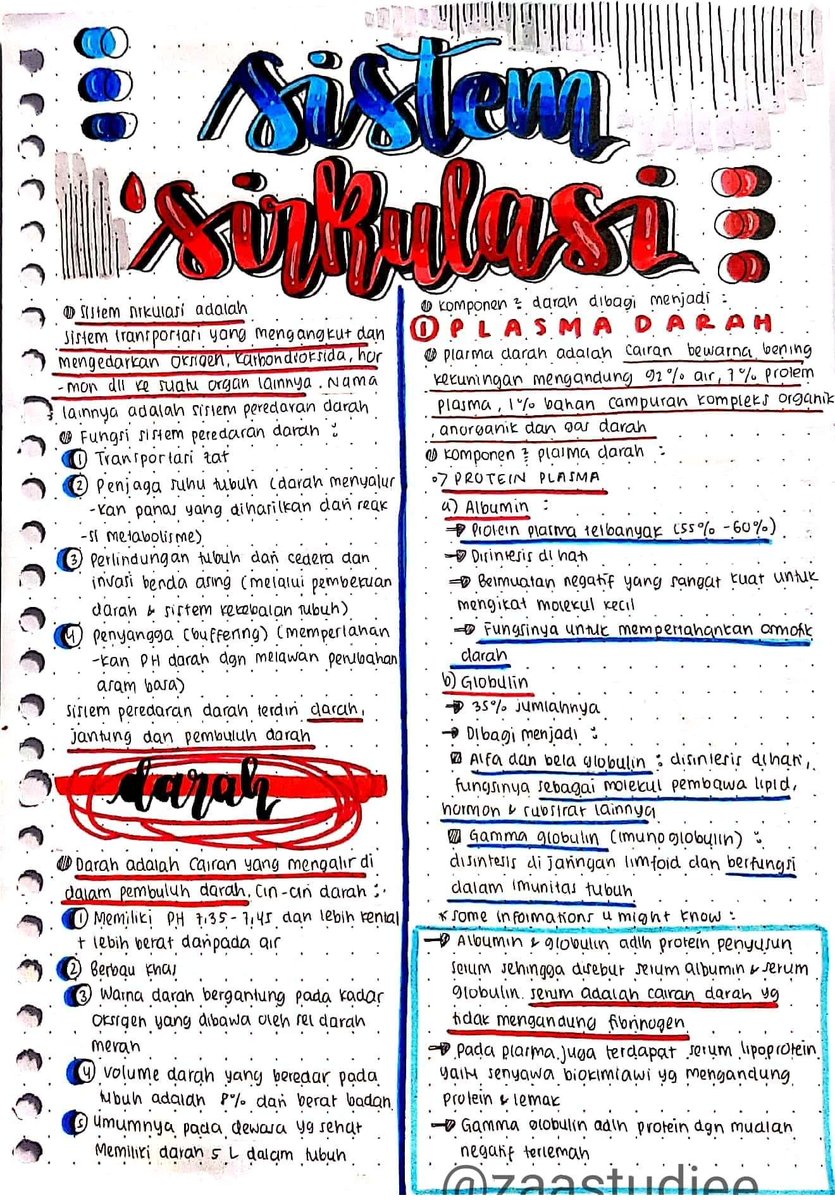 sistem
sirkulasi
Sistem sirkulasi adalah
sistem transportasi yang mengangkut dan
mengedarkan oksigen, karbondioksida, hor
-mon dll ke suatu organ lainnya. Nama
lainnya adalah sistem peredaran darah
Fungsi sistem peredaran darah :
1 Transportasi zat
2 Penjaga suhu tubuh (darah menyalur
-kan panas yang dihasilkan dari reak
-si metabolisme)
3 Perlindungan tubuh dari cedera dan
invasi benda asing (melalui pembekuan
darah & sistem kekebalan tubuh)
4 Penyangga (buffering) (memperlahan
-kan PH darah dgn melawan perubahan
asam basa)
sistem peredaran darah terdiri darah,
jantung dan pembuluh darah
darah
Darah adalah cairan yang mengalir di
dalam pembuluh darah. Ciri-ciri darah :
1 Memiliki PH 7,35-7,45 dan lebih kental
+ lebih berat daripada air
2 Berbau khas
3 Warna darah bergantung pada kadar
oksigen yang dibawa oleh sel darah
merah
4 Volume darah yang beredar pada
tubuh adalah 8% dari berat badan
5 Umumnya pada dewasa yg sehat
Memiliki darah 5 L dalam tubuh
Komponen² darah dibagi menjadi :
1 PLASMA DARAH
Plasma darah adalah cairan bewarna bening
kekuningan mengandung 92% air, 7% protein
plasma, 1% bahan campuran kompleks organik
, anorganik dan gas darah
Komponen² plasma darah :
PROTEIN PLASMA
a) Albumin :
→ Protein plasma terbanyak (55%-60%)
→ Disintesis di hati
→ Bermuatan negatif yang sangat kuat untuk
mengikat molekul kecil
→ Fungsinya untuk mempertahankan osmotik
darah
b) Globulin
→ 35% jumlahnya
→ Dibagi menjadi :
Alfa dan beta globulin : disintesis dihati,
fungsinya sebagai molekul pembawa lipid,
hormon & substrat lainnya
Gamma globulin (imunoglobulin) :
disintesis di jaringan limfoid dan berfungsi
dalam imunitas tubuh
* some informations u might know :
→ Albumin & globulin adlh protein penyusun
serum sehingga disebut serum albumin & serum
globulin. serum adalah cairan darah yg
tidak mengandung fibrinogen
→ Pada plasma juga terdapat serum lipoprotein
yaitu senyawa biokimiawi yg mengandung
protein & lemak
→ Gamma globulin adlh protein dgn muatan
negatif terlemah
@zaastudiee